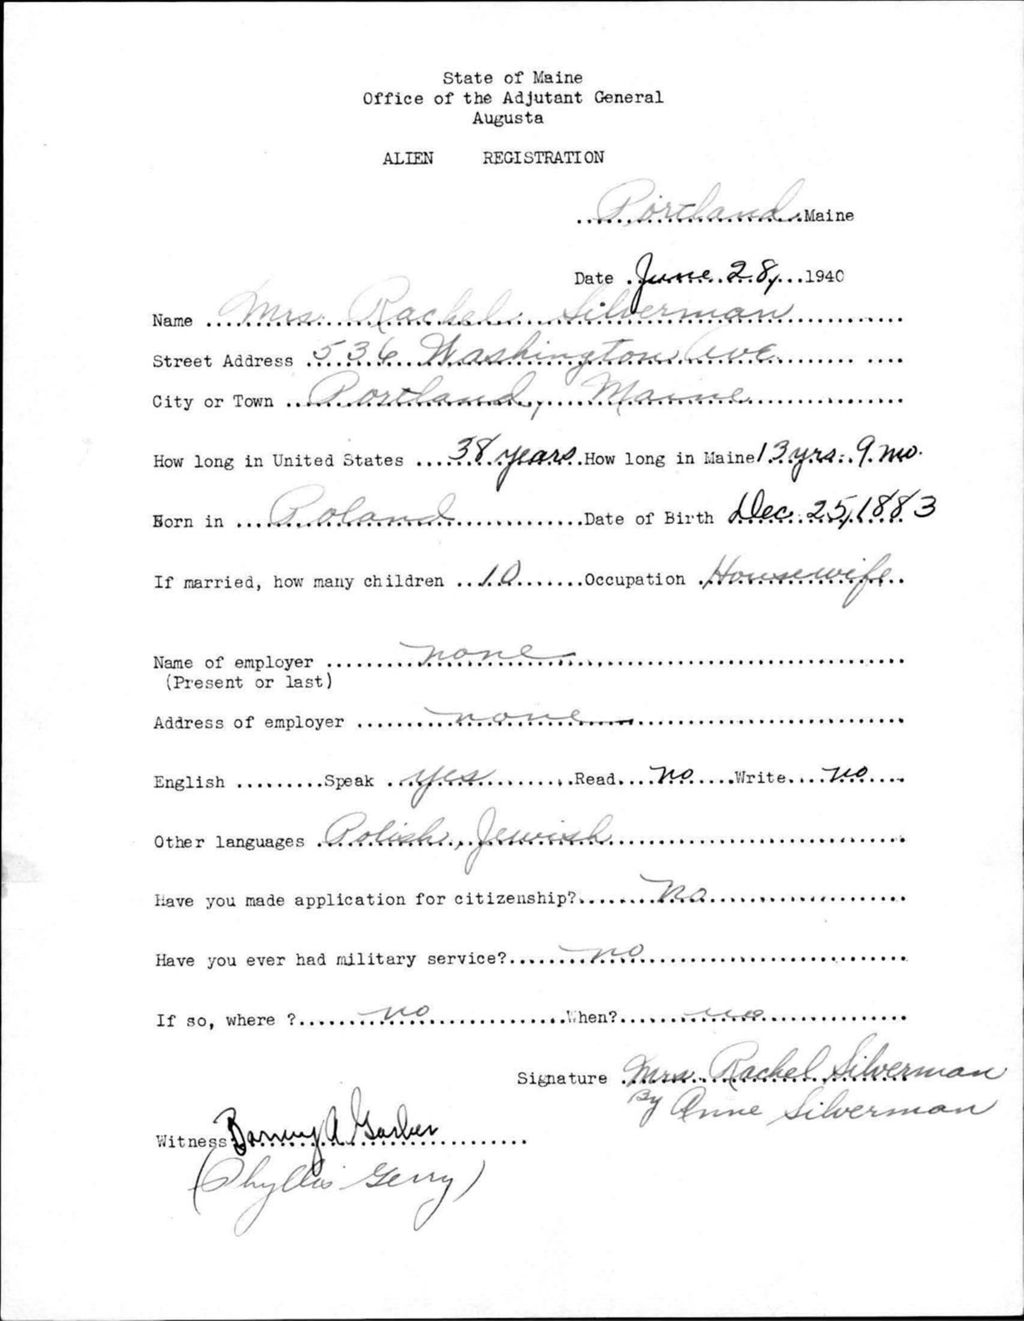 State of Maine
Office of the Adjutant General
Augusta
ALIEN REGISTRATION
Portland, Maine
Date June 28, 1940
Name Mrs. Rachel Silverman
Street Address 536 Washington Ave.
City or Town Portland, Maine
How long in United States 38 years How long in Maine 13 yrs. 9 mo.
Born in Poland Date of Birth Dec. 25, 1883
If married, how many children 10 Occupation Housewife
Name of employer none
(Present or last)
Address of employer none
English Speak yes Read no Write no
Other languages Polish, Jewish
Have you made application for citizenship? No
Have you ever had military service? no
If so, where ? no When? no
Signature Mrs. Rachel Silverman
By Anne Silverman
Witness Barney A Garber
(Phyllis Gerry)